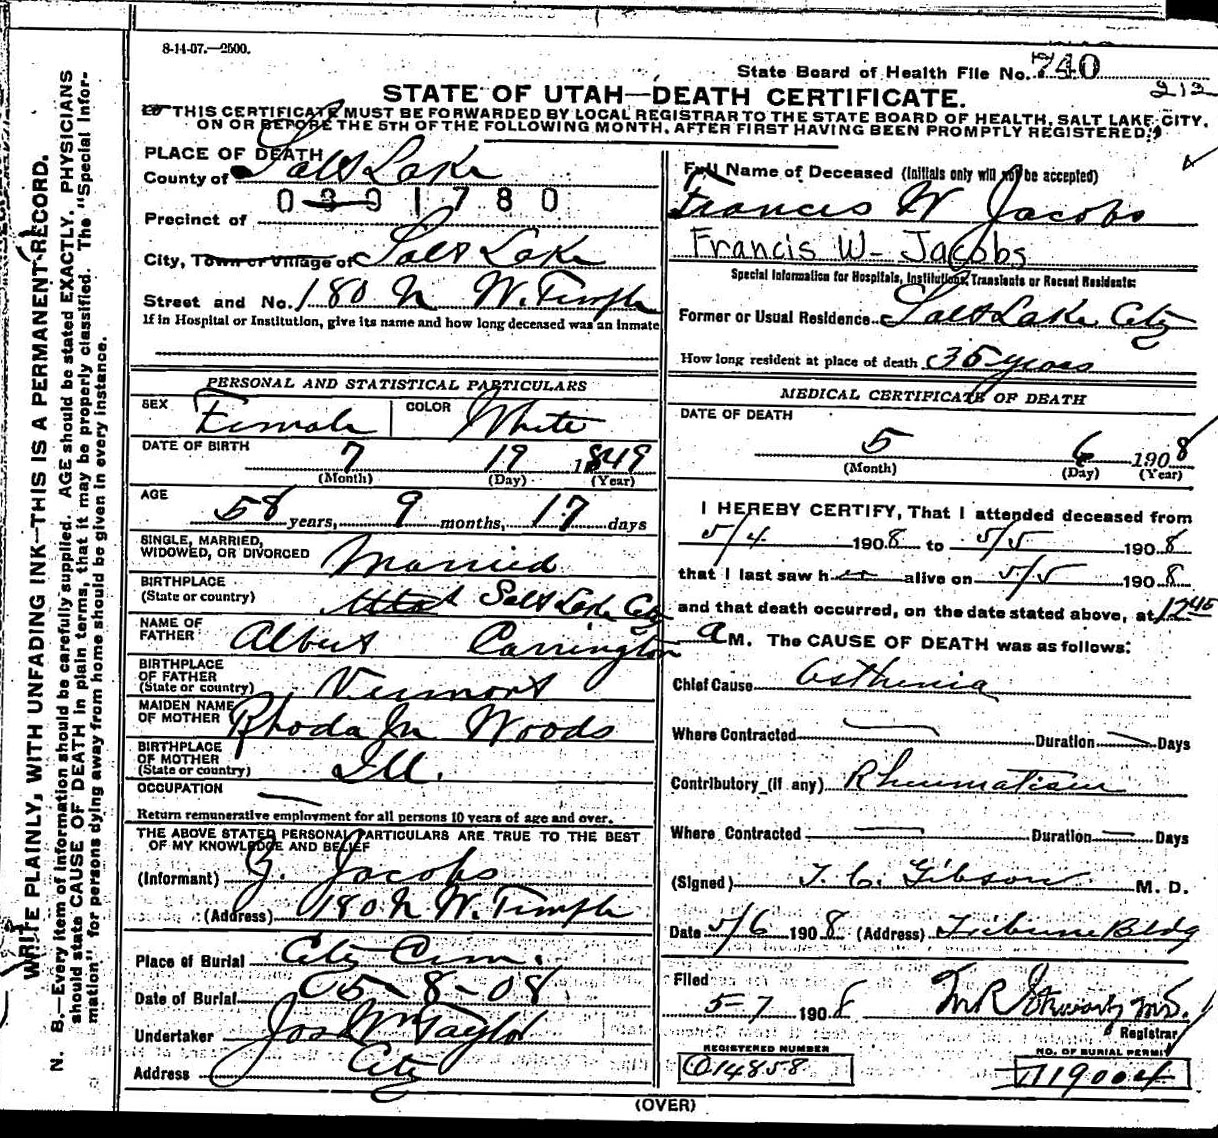 8-14-07.—2500.
State Board of Health File No. 740
212
STATE OF UTAH—DEATH CERTIFICATE.
THIS CERTIFICATE MUST BE FORWARDED BY LOCAL REGISTRAR TO THE STATE BOARD OF HEALTH, SALT LAKE CITY,
ON OR BEFORE THE 5TH OF THE FOLLOWING MONTH, AFTER FIRST HAVING BEEN PROMPTLY REGISTERED.
WRITE PLAINLY, WITH UNFADING INK—THIS IS A PERMANENT RECORD.
N. B.—Every item of information should be carefully supplied. AGE should be stated EXACTLY. PHYSICIANS
should state CAUSE OF DEATH in plain terms, that it may be properly classified. The "Special Infor-
mation" for persons dying away from home should be given in every instance.
PLACE OF DEATH
County of Salt Lake
0301780
Precinct of
City, Town or Village of Salt Lake
Street and No. 180 N W. Temple
If in Hospital or Institution, give its name and how long deceased was an inmate
PERSONAL AND STATISTICAL PARTICULARS
SEX Female COLOR White
DATE OF BIRTH 7 19 1849
(Month) (Day) (Year)
AGE 58 years, 9 months, 17 days
SINGLE, MARRIED,
WIDOWED, OR DIVORCED Married
BIRTHPLACE
(State or country) Utah Salt Lake City
NAME OF
FATHER Albert Carrington
BIRTHPLACE
OF FATHER
(State or country) Vermont
MAIDEN NAME
OF MOTHER Rhoda M Woods
BIRTHPLACE
OF MOTHER
(State or country) Ill.
OCCUPATION —
Return remunerative employment for all persons 10 years of age and over.
THE ABOVE STATED PERSONAL PARTICULARS ARE TRUE TO THE BEST
OF MY KNOWLEDGE AND BELIEF
(Informant) Z. Jacobs
(Address) 180 N W. Temple
Place of Burial City Cem.
Date of Burial 05-8-08
Undertaker Jos Wm Taylor
Address City
Full Name of Deceased (Initials only will not be accepted)
Francis W Jacobs
Francis W- Jacobs
Special Information for Hospitals, Institutions, Transients or Recent Residents:
Former or Usual Residence Salt Lake City
How long resident at place of death 35 years
MEDICAL CERTIFICATE OF DEATH
DATE OF DEATH
5 6 1908
(Month) (Day) (Year)
I HEREBY CERTIFY, That I attended deceased from
5/4 1908 to 5/5 1908
that I last saw her alive on 5/5 1908
and that death occurred, on the date stated above, at 12 45
a M. The CAUSE OF DEATH was as follows:
Chief Cause Asthenia
Where Contracted — Duration — Days
Contributory (if any) Rheumatism
Where Contracted — Duration — Days
(Signed) T. C. Gibson M. D.
Date 5/6 1908 (Address) Tribune Bldg
Filed
5-7 1908 M R Stewart M.D.
Registrar
REGISTERED NUMBER
014858
NO. OF BURIAL PERMIT
A19004
(OVER)